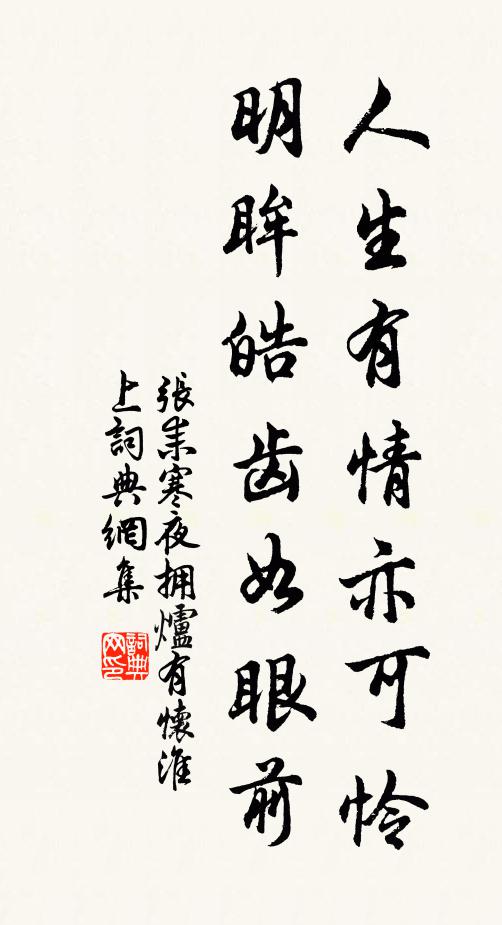 人生有情亦可怜
明眸皓齿如眼前
張耒寒夜拥爐有懷淮
上詞典網集
詞典
网印